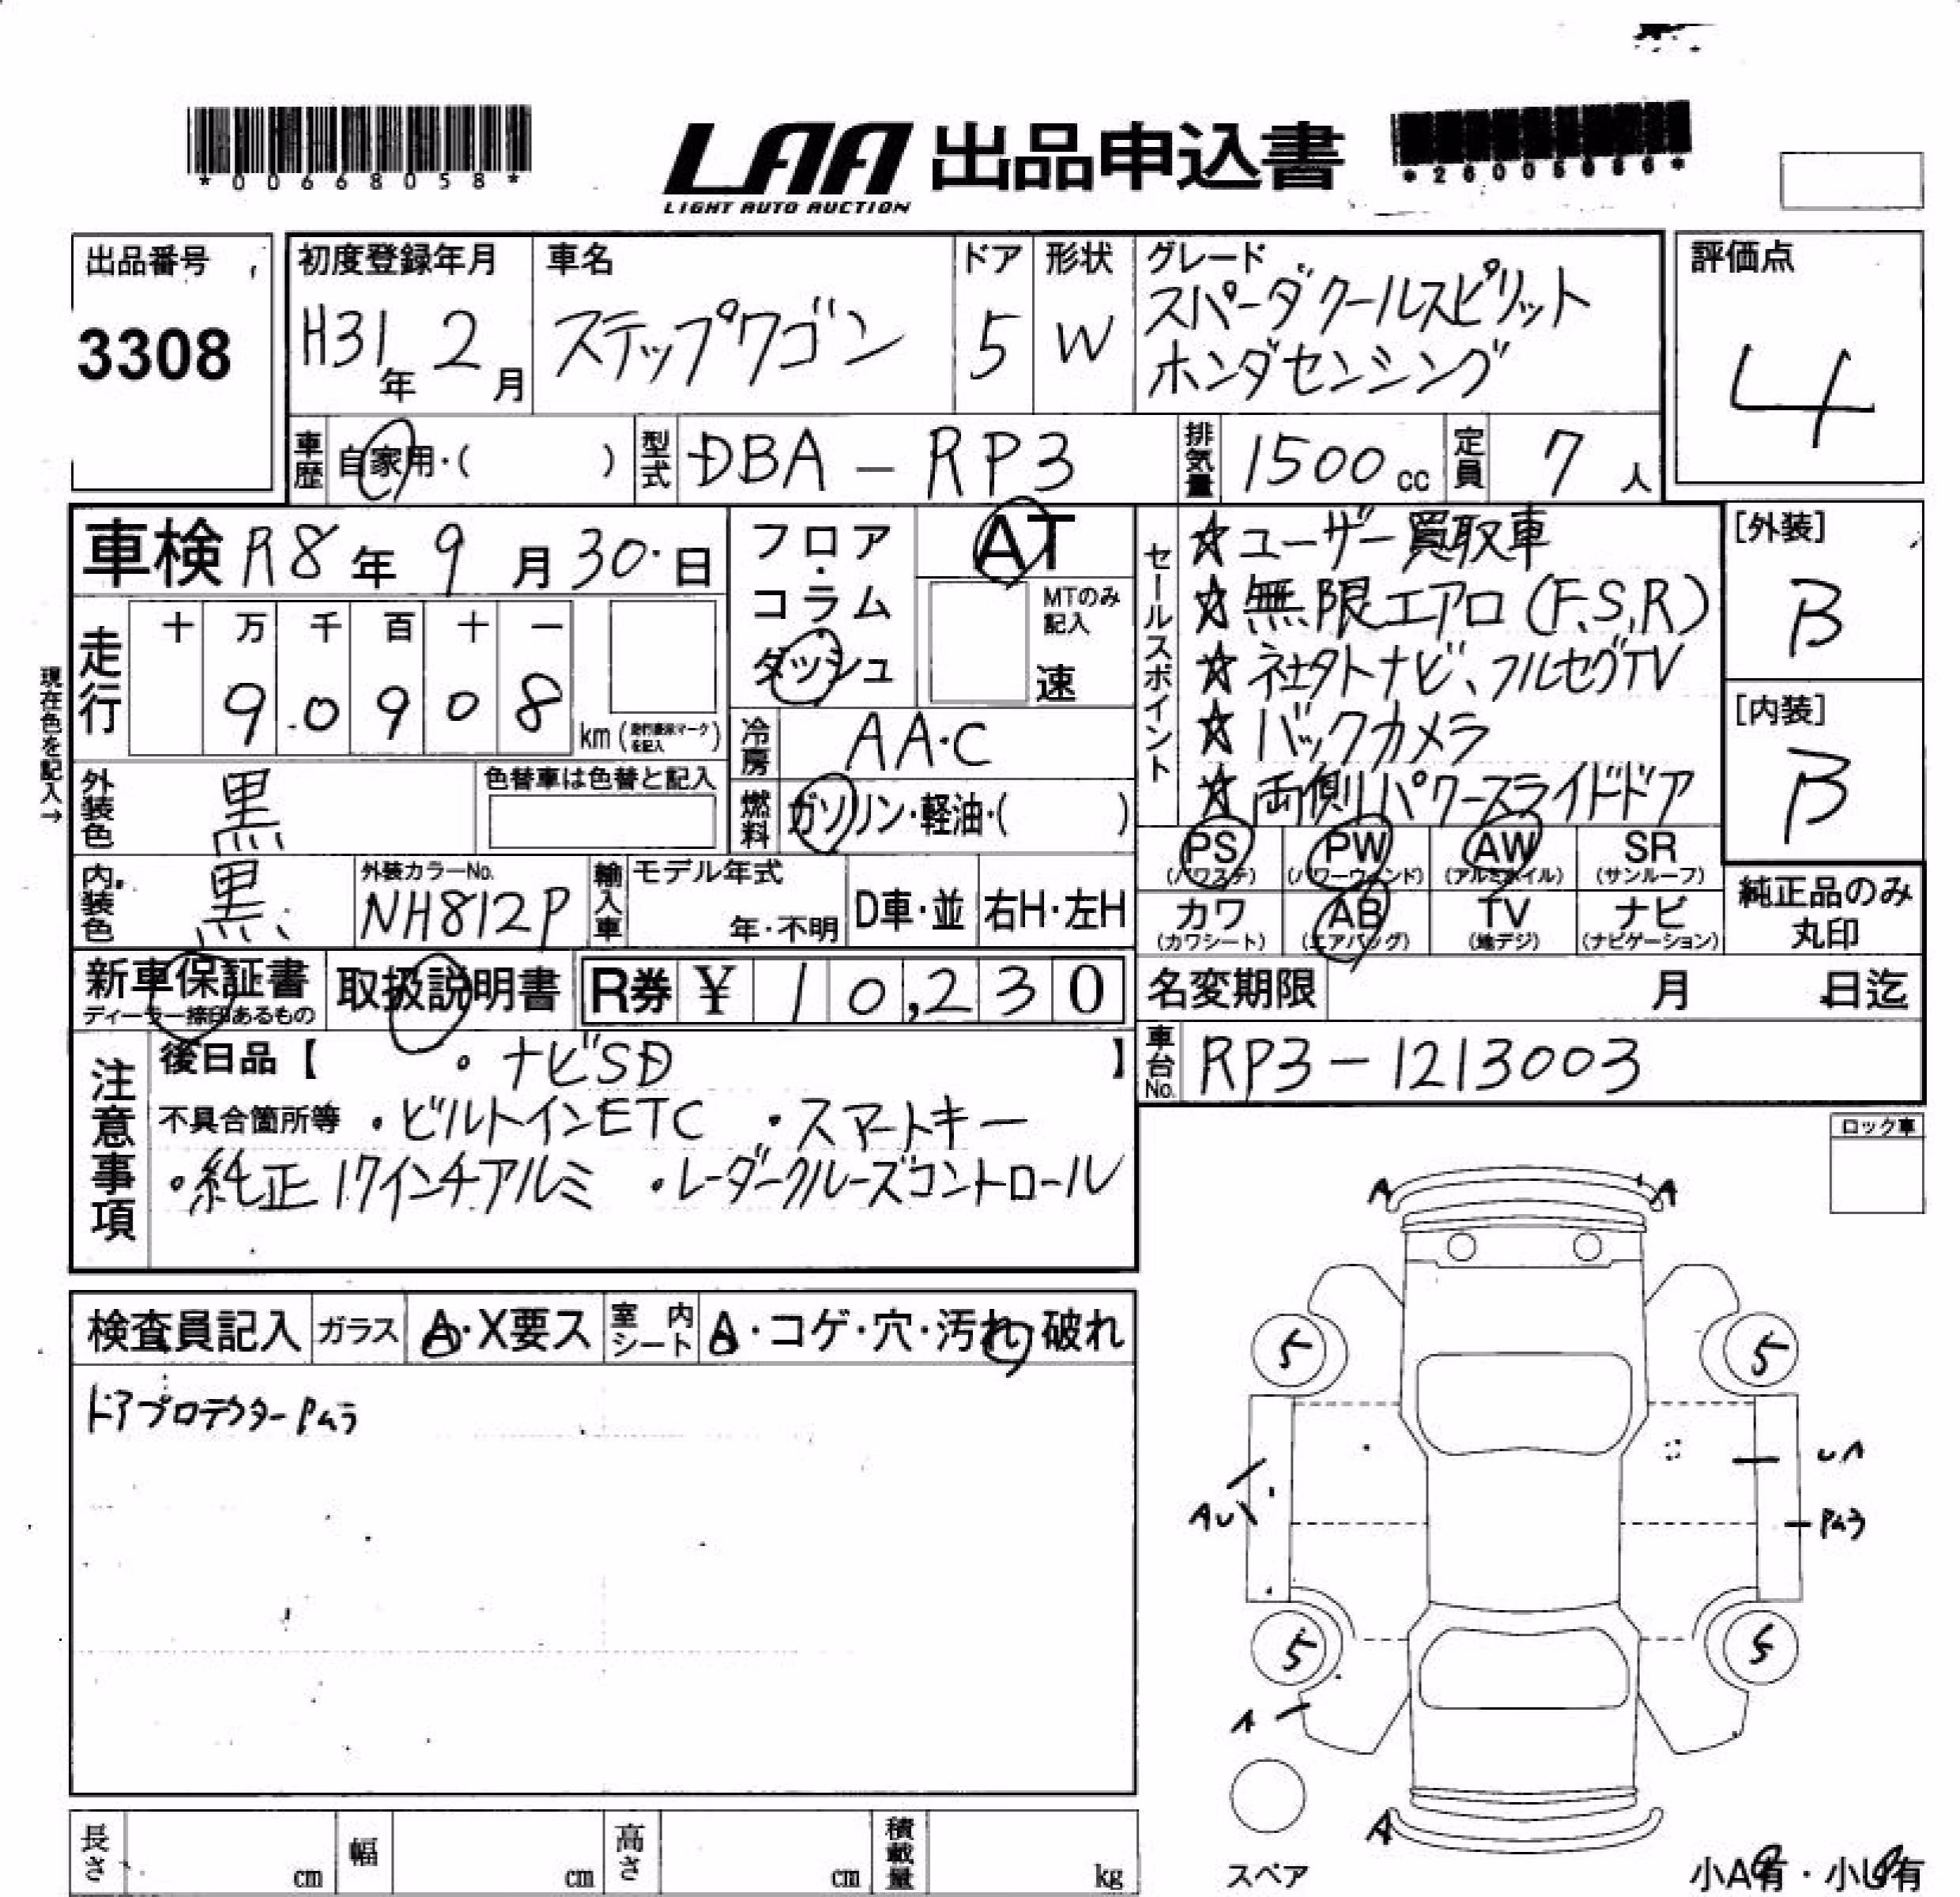 *00668058*
LAA 出品申込書
LIGHT AUTO AUCTION
出品番号
3308
初度登録年月
H31年 2月
車名
ステップワゴン
ドア
5
形状
W
グレード
スパーダクールスピリット
ホンダセンシング
評価点
4
車歴 自家用・( )
型式 DBA-RP3
排気量 1500cc
定員 7人
車検 R8年 9月 30日
フロア・コラム ダッシュ
AT
MTのみ記入
速
走行
十 万 千 百 十 一
9 0 9 0 8
km (走行疑味マークを記入)
現在色を記入→
冷房 AA・C
燃料 ガソリン・軽油・( )
外装色 黒
色替車は色替と記入
内装色 黒
外装カラーNo.
NH812P
輸入車
モデル年式
年・不明
D車・並
右H・左H
セールスポイント
☆ユーザー買取車
☆無限エアロ(F,S,R)
☆社外ナビ、フルセグTV
☆バックカメラ
☆両側パワースライドドア
[外装]
B
[内装]
B
PS (パワステ)
PW (パワーウィンド)
AW (アルミホイル)
SR (サンルーフ)
カワ (カワシート)
AB (エアバッグ)
TV (地デジ)
ナビ (ナビゲーション)
純正品のみ丸印
新車保証書
ディーラー捺印あるもの
取扱説明書
R券 ¥ 10,230
名変期限 月 日迄
車台No. RP3-1213003
注意事項
後日品【 ・ナビSD 】
不具合箇所等 ・ビルトインETC ・スマートキー
・純正17インチアルミ ・レーダークルーズコントロール
ロック車
検査員記入
ガラス A・X要ス
室内シート A・コゲ・穴・汚れ・破れ
ドアプロテクターPムラ
A A
5 5
UA
AU
Pムラ
5 5
A
A
スペア
長さ cm
幅 cm
高さ cm
積載量 kg
小A有・小U有